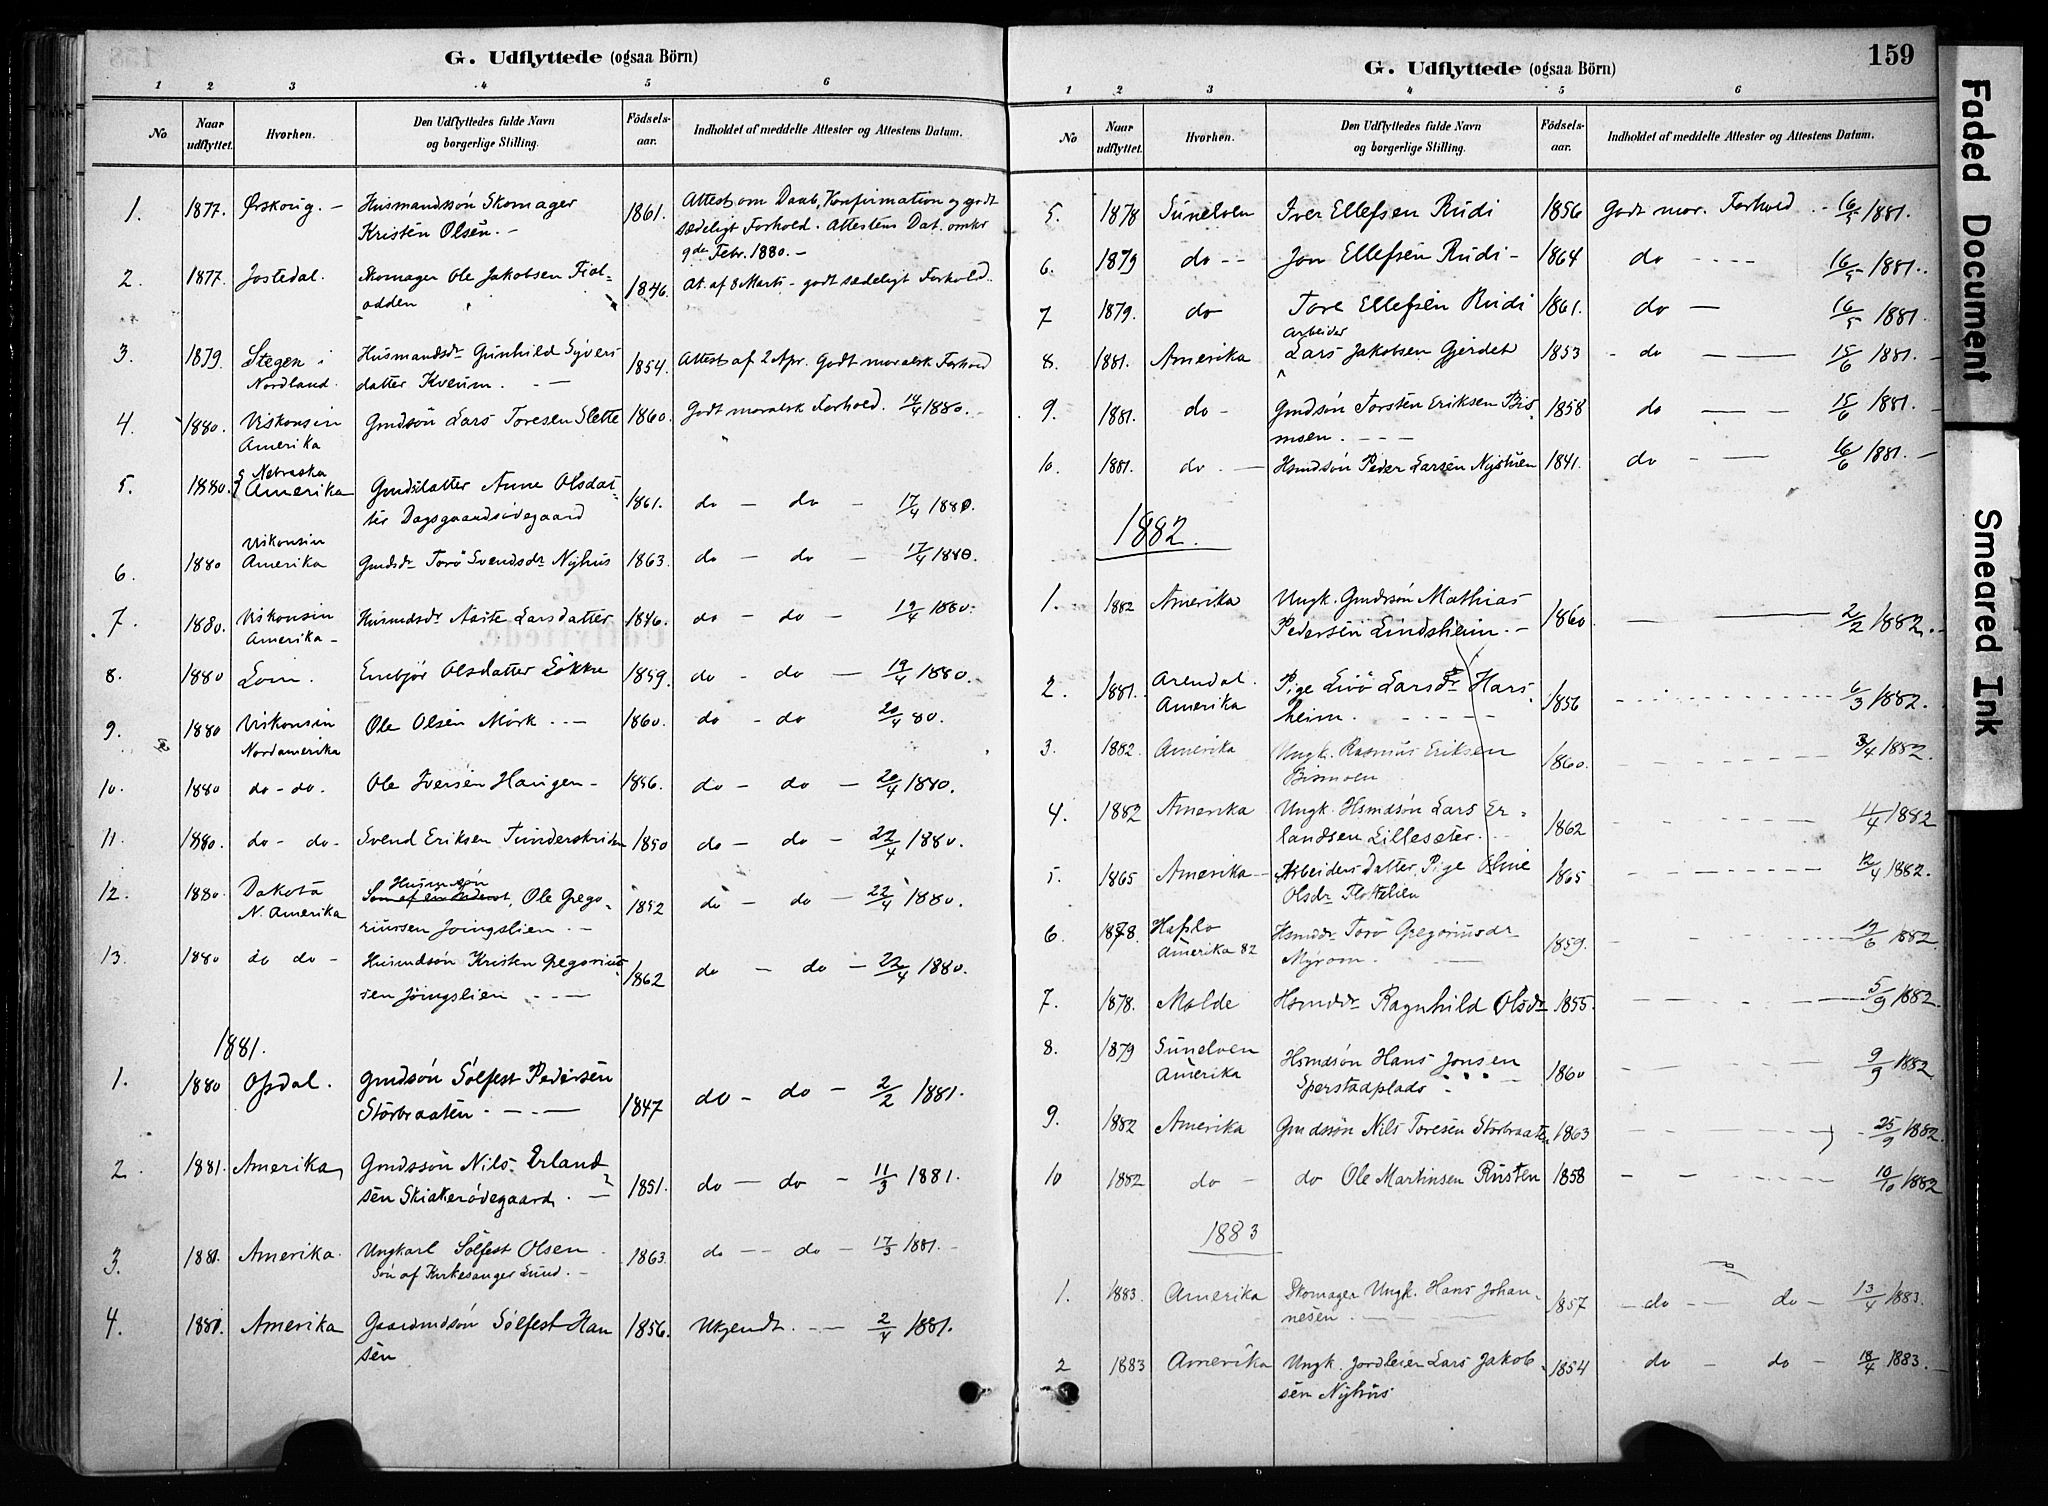 G. Udflyttede (ogsaa Börn)
1 2 3 4 5 6
No Naar udflyttet. Hvorhen. Den Udflyttedes fulde Navn og borgerlige Stilling. Födsels-aar. Indholdet af meddelte Attester og Attestens Datum.
1. 1877. Ørskoug. - Husmandssön Skomager 1861. Attest om Daab, Konfirmation og godt
Kristen Olsen. - sædeligt Forhold. Attestens Dat. omkr
9de Febr. 1880. -
2 1877. Jostedal. Skomager Ole Jakobsen Fiol- 1846. At. af 8 Marts - godt sædeligt Forhold.
odden
3. 1879. Stegen i Husmandsdr Gunhild Syvers 1854. Attest af 2 Apr. Godt moralsk Forhold
Nordland. datter Kveum. - -
4. 1880. Viskonsin Gmdsön Lars Toresen Slette 1860. Godt moralsk Forhold. 14/4 1880. -
Amerika
5. 1880. Nebraska
Amerika Gmdsdatter Anne Olsdat- 1861. do - do - 17/4 1880.
ter Dagsgaardsødegaard
6. 1880 Viskonsin
Amerika Gmdsdr Torö Svendsdr Nyhus 1863. do - do - 17/4 1880.
7. 1880. Viskonsin Husmdsdr Aaste Larsdatter 1846. do - do - 19/4 1880.
Amerika -
8. 1880 Lom. Embjör Olsdatter Løkke 1859. do - do - 19/4 1880.
9. 1880 Viskonsin Ole Olsen Mork. - - 1860. do - do 20/4 80.
Nordamerika
10. 1880 do - do. Ole Iversen Haugen - 1856. do - do - 20/4 1880.
11. 1880. do - do - Svend Eriksen Tunderskriden 1850 do - do - 22/4 1880.
12. 1880. Dakota Husmsön Ole Grego- 1852 do - do - 22/4 1880.
N. Amerika riussen Joingslien. -
13. 1880 do do - Husmdsön Kristen Gregorius- 1862 do - do - 22/4 1880.
sen Joingslien - - -
1881.
1. 1880 Opdal. Gmdsön Sölfest Pedersen 1847 do - do - 2/2 1881.
Storbraaten - - -
2. 1881. Amerika Gmdssön Nils Erland 1851. do - do - 11/3 1881.
sen Skiakerødegaard. -
3. 1881. Amerika. Ungkarl Sölfest Olsen 1863. do - - do - 17/3 1881. -
Sön af Kirkesanger Lund. -
4. 1881. Amerika Gaardmdsön Sölfest Han 1856. Ukjendt. - - 2/4 1881.
sen
159
G. Udflyttede (ogsaa Börn)
1 2 3 4 5 6
No Naar udflyttet. Hvorhen. Den Udflyttedes fulde Navn og borgerlige Stilling. Födsels-aar. Indholdet af meddelte Attester og Attestens Datum.
5. 1878 Sunelven Iver Ellefsen Rudi 1856 Godt mor. Forhold - 16/5 1881.
6. 1879 do - - Jon Ellefsen Rudi - 1864 do - - - - 16/5 1881.
7 1879. do Tore Ellefsen Rudi 1861. do - 16/5 1881.
8. 1881. Amerika arbeider Lars Jakobsen Gjerdet 1853 - do - - 15/6 1881. -
9. 1881. do - Gmdsön Torsten Eriksen Bis- 1858 do - - 15/6 1881. -
moen. - - -
10. 1881. do. - Hsmdsön Peder Larsen Nystuen 1841. do - - 16/6 1881. -
1882.
1. 1882 Amerika Ungk. Gmdrsön Mathias 1860. - - 2/2 1882. -
Pedersen Lindsheim. -
2. 1881. Arendal. Pige Livö Larsdr Hars- 1856 6/3 1882.
Amerika heim. - - - -
3. 1882. Amerika Ungk. Rasmus Eriksen 1860. 3/4 1882.
Bismoen
4. 1882 Amerika Ungk. Hsmdsön Lars Er- 1862 11/4 1882
landsen Lillesæter.
5. 1865 Amerika - Arbeidersdatter, Pige Oline 1865 12/4 1882.
Olsdr Flottelien
6 1878. Hafslo Hsmddr Torö Gregoriusdr 1859. 19/6 1882.
Amerika 82 Myrom. -
7. 1878. Molde Hsmddr Ragnhild Olsdr 1855. 5/9 1882.
8. 1879 Sunelven Hsmdsön Hans Jonsen 1860 9/9 1882
Amerika Sperstadplads
9. 1882 Amerika Gmdssön Nils Toresen Storbraaten 1863 25/9 1882.
10 1882 do - do Ole Martinsen Rusten 1858 10/10 1882
1883
1. 1883. Amerika Skomager Ungk. Hans Johan- 1857 - do - - do - 13/4 1883.
nesen. -
2 1883 Amerika Ungk. Jordleier Lars Jakob- 1854 do - do - 18/4 1883. -
sen Nyhus
Faded Document
Smeared Ink